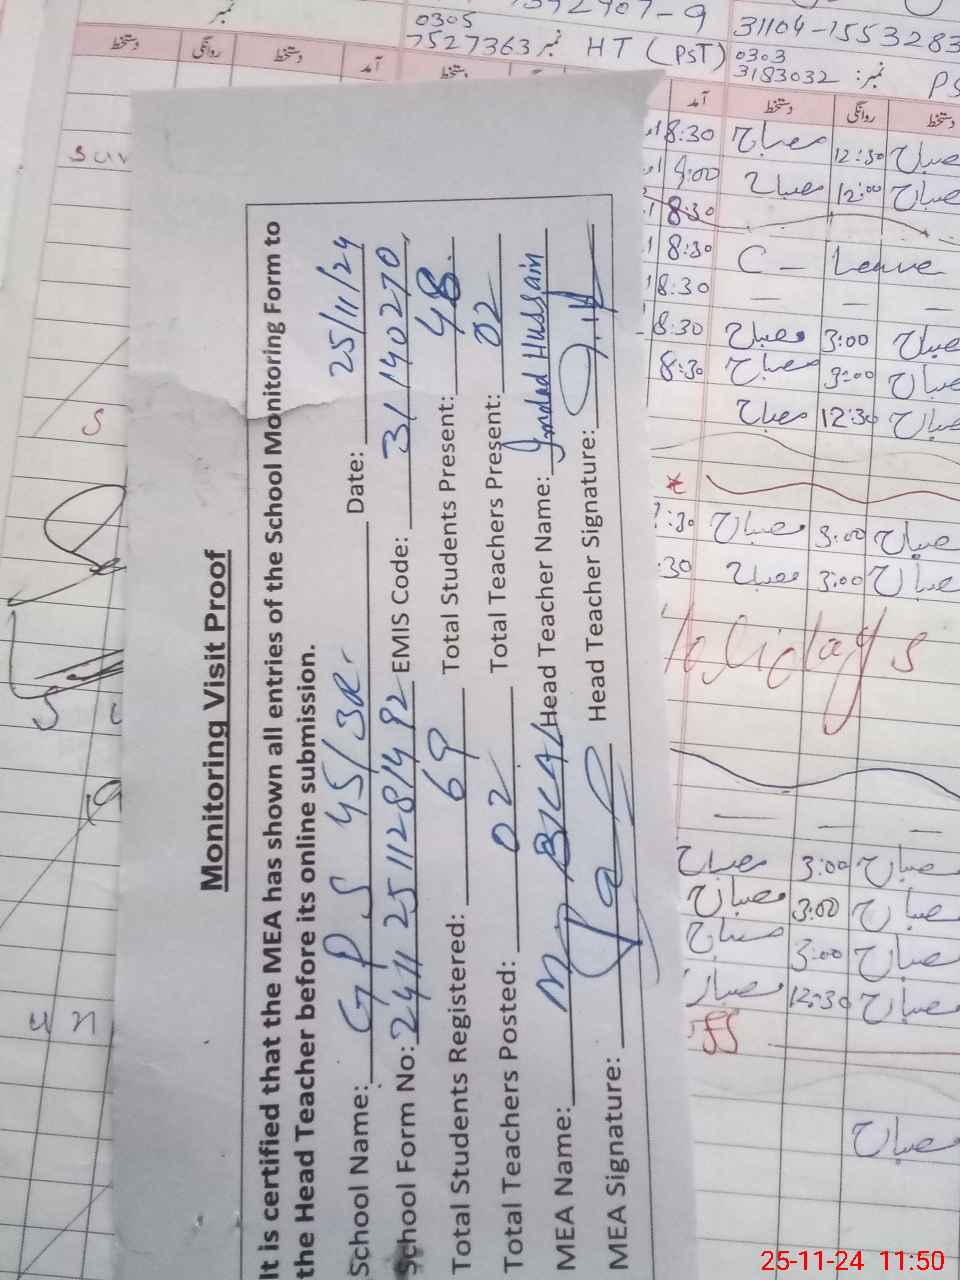 Monitoring Visit Proof
It is certified that the MEA has shown all entries of the School Monitoring Form to
the Head Teacher before its online submission.
School Name: GPS 45/3R Date: 25/11/24
School Form No: EMIS Code: 31140270
Total Students Registered: 69 Total Students Present: 48
Total Teachers Posted: 02 Total Teachers Present: 02
MEA Name: M BILAL Head Teacher Name: Imdad Hussain
MEA Signature: Head Teacher Signature:
نمبر
0305
7527363 نمبر HT (PST)
31104-1553283
0303
3183032 نمبر:
دستخط روانگی دستخط آمد دستخط
آمد دستخط روانگی دستخط
8:30 مصباح 12:30 مصباح
9:00 مصباح 12:00 مصباح
8:30
8:30 C - Leave
8:30
8:30 مصباح 3:00 مصباح
8:30 مصباح 3:00 مصباح
مصباح 12:30 مصباح
:30 مصباح 3:00 مصباح
:30 مصباح 3:00 مصباح
Holidays
مصباح 3:00 مصباح
مصباح 3:00 مصباح
مصباح 3:00 مصباح
مصباح 12:30 مصباح
مصباح
25-11-24 11:50